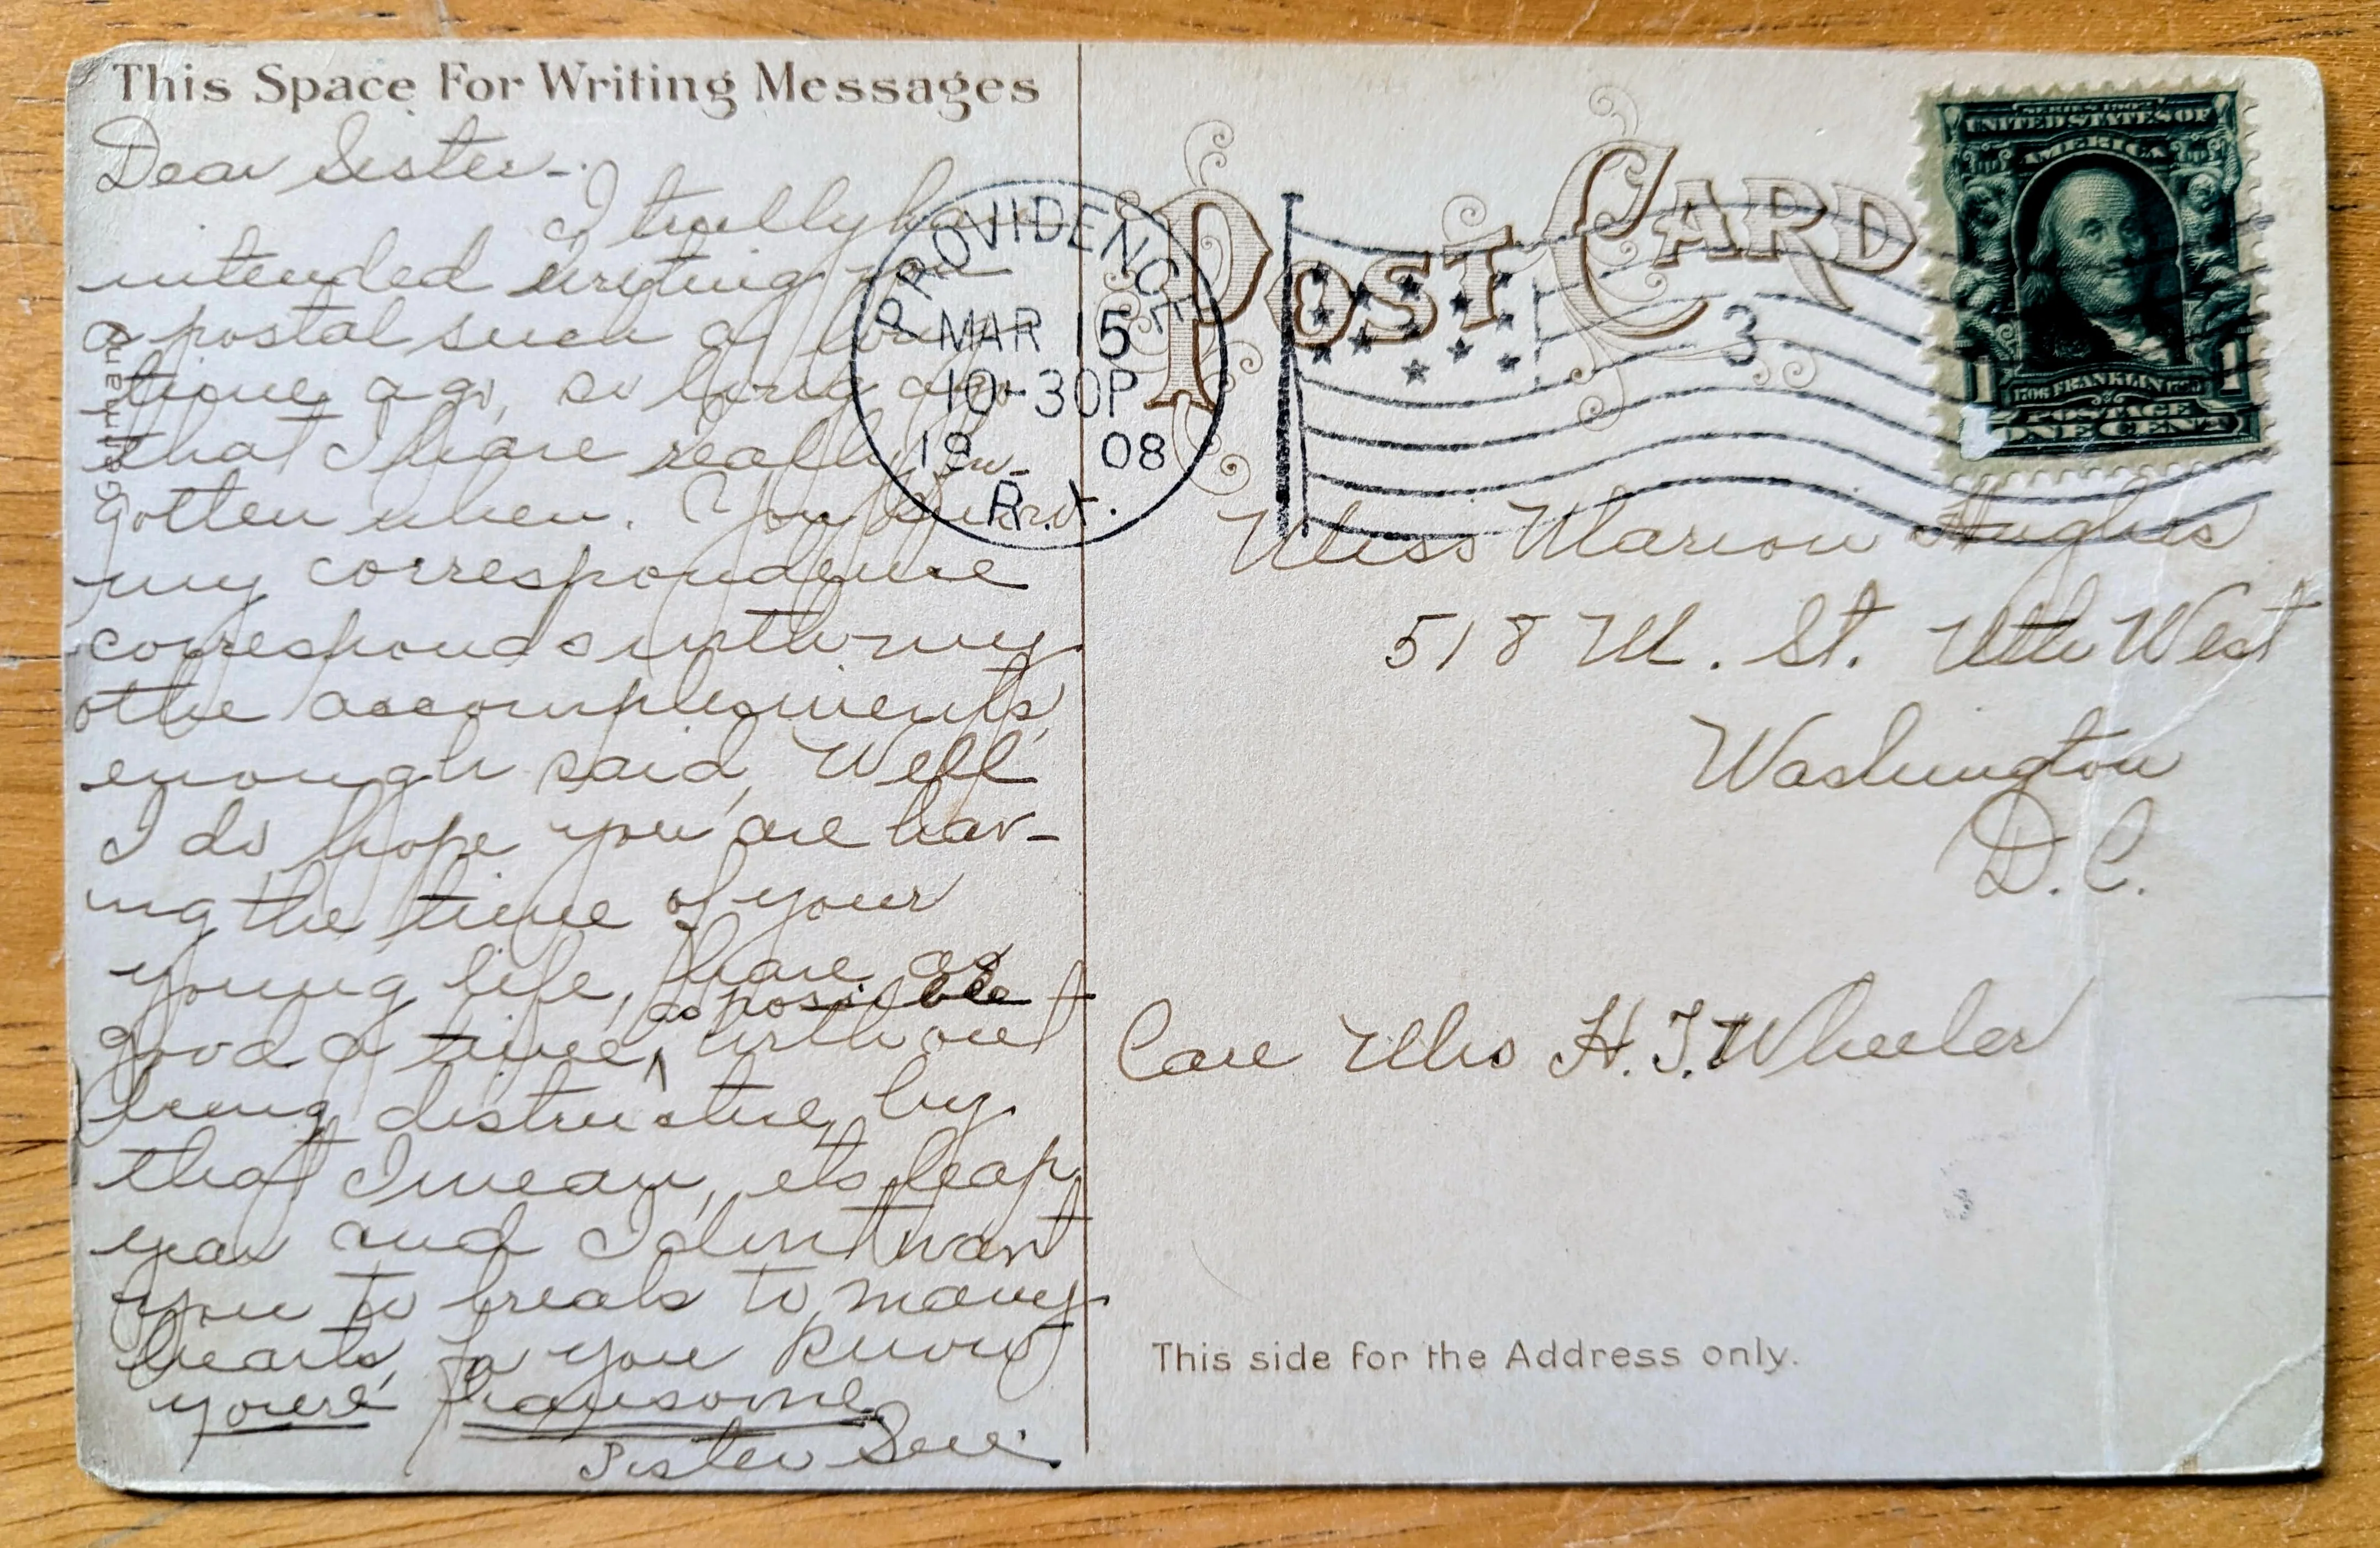 This Space For Writing Messages
Dear Sister-.
I trully have
intended writing you
a postal such a long
time ago, so long ago
that I have really for-
gotten when. You know
my correspondence
corresponds with my
othe accomplements,
enough said, Well
I do hope you are hav-
ing the time of your
young life, have as
as possible
good a time, without
being distructive, by
that I mean, its leap
year and I dont want
you to break to many
hearts, fo you know
youre hansome
Sister
German
POST CARD
PROVIDENCE
MAR 15
10-30P
19 08
R.I.
3
SERIES 1902
UNITED STATES OF
AMERICA
1706 FRANKLIN 1790
1 POSTAGE 1
ONE CENT
Miss Marion Hughes
518 M. St. Nth West
Washington
D.C.
Care Mrs H. T. Wheeler
This side for the Address only.